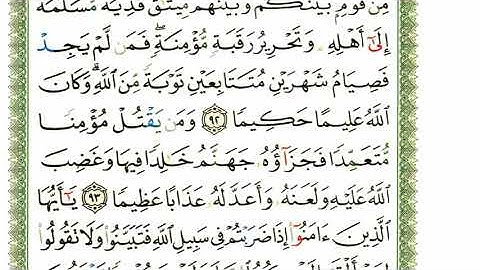 مِن قَوْمٍۭ بَيْنَكُمْ وَبَيْنَهُم مِّيثَٰقٌ فَدِيَةٌ مُّسَلَّمَةٌ
إِلَىٰٓ أَهْلِهِۦ وَتَحْرِيرُ رَقَبَةٍ مُّؤْمِنَةٍ ۖ فَمَن لَّمْ يَجِدْ
فَصِيَامُ شَهْرَيْنِ مُتَتَابِعَيْنِ تَوْبَةً مِّنَ ٱللَّهِ ۗ وَكَانَ
ٱللَّهُ عَلِيمًا حَكِيمًا ٩٢ وَمَن يَقْتُلْ مُؤْمِنًا
مُّتَعَمِّدًا فَجَزَآؤُهُۥ جَهَنَّمُ خَٰلِدًا فِيهَا وَغَضِبَ
ٱللَّهُ عَلَيْهِ وَلَعَنَهُۥ وَأَعَدَّ لَهُۥ عَذَابًا عَظِيمًا ٩٣ يَٰٓأَيُّهَا
ٱلَّذِينَ ءَامَنُوٓا۟ إِذَا ضَرَبْتُمْ فِى سَبِيلِ ٱللَّهِ فَتَبَيَّنُوا۟ وَلَا تَقُولُوا۟